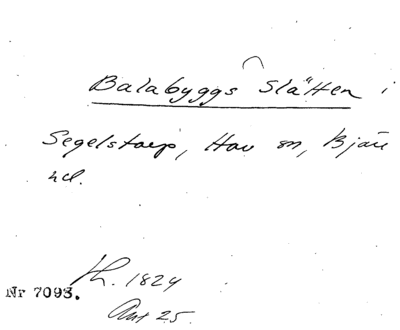 Balabyggs Slätten i
Segelstorp, Hov sn, Bjäre
hd.
Lh. 1824
Nr 7093.
Akt 25.